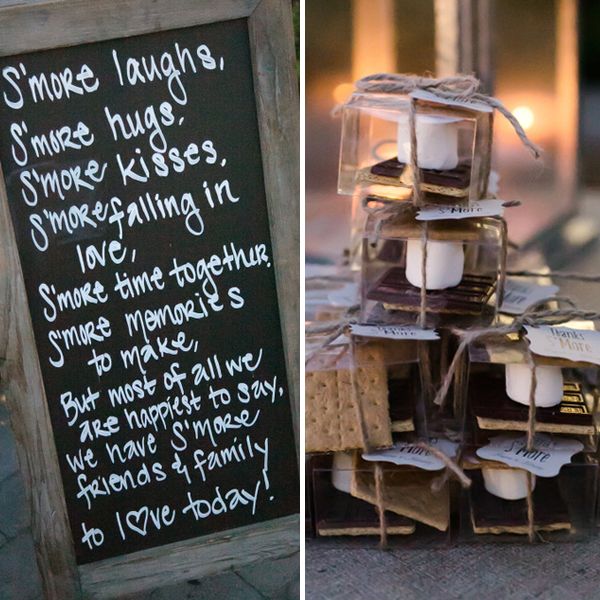 S'more laughs,
S'more hugs,
S'more kisses,
S'more falling in
love,
S'more time together,
S'more memories
to make,
But most of all we
are happiest to say,
we have S'more
friends & family
to l♡ve today!
S'More
Thanks
S'More
Thanks
S'More
S'More
S'More